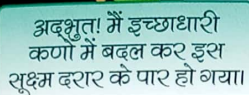 अदभुत! मैं इच्छाधारी
कणों में बदल कर इस
सूक्ष्म दरार के पार हो गया।